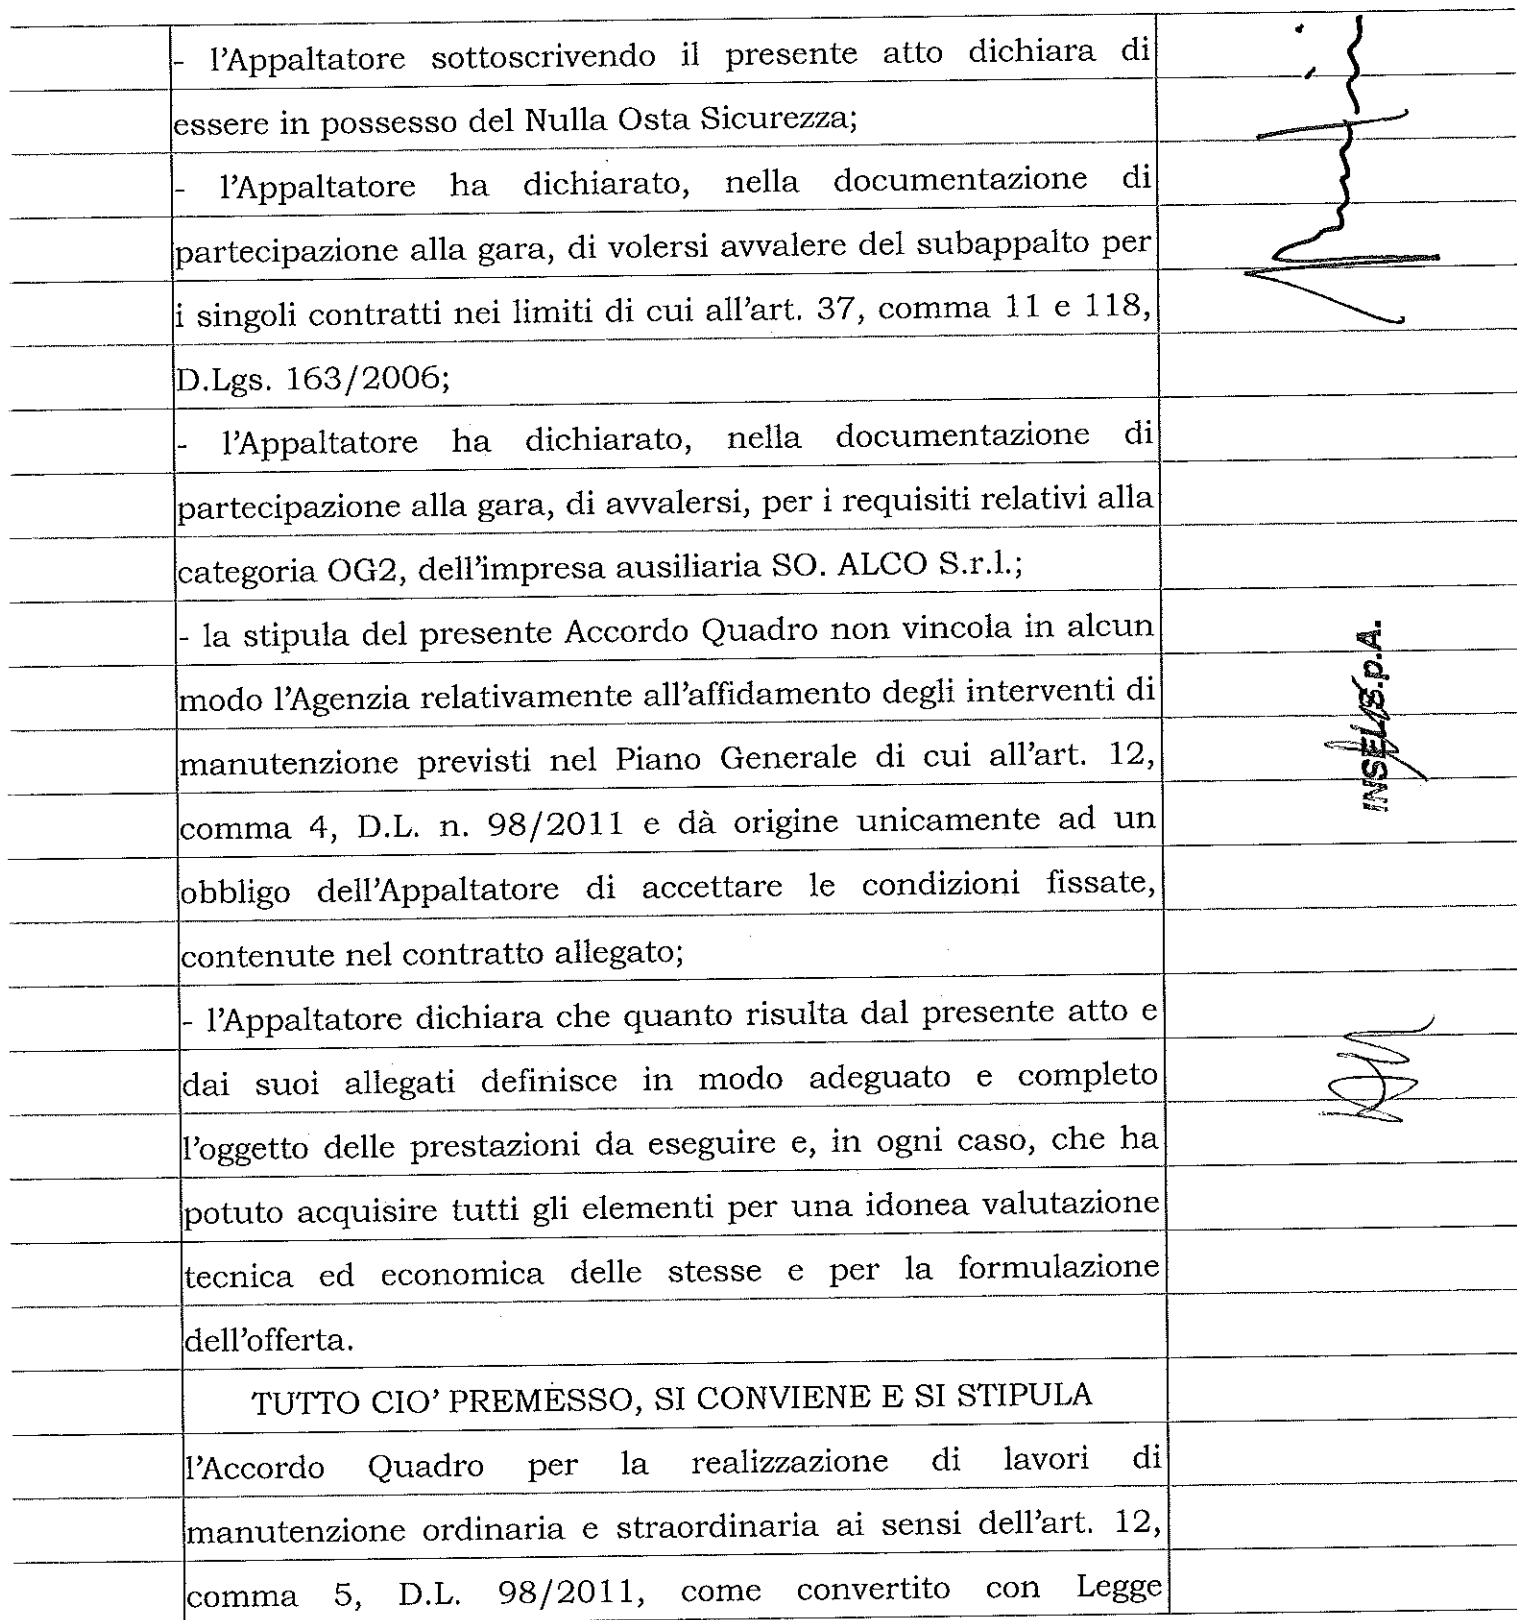 - l'Appaltatore sottoscrivendo il presente atto dichiara di
essere in possesso del Nulla Osta Sicurezza;
- l'Appaltatore ha dichiarato, nella documentazione di
partecipazione alla gara, di volersi avvalere del subappalto per
i singoli contratti nei limiti di cui all'art. 37, comma 11 e 118,
D.Lgs. 163/2006;
- l'Appaltatore ha dichiarato, nella documentazione di
partecipazione alla gara, di avvalersi, per i requisiti relativi alla
categoria OG2, dell'impresa ausiliaria SO. ALCO S.r.l.;
- la stipula del presente Accordo Quadro non vincola in alcun
modo l'Agenzia relativamente all'affidamento degli interventi di
manutenzione previsti nel Piano Generale di cui all'art. 12,
comma 4, D.L. n. 98/2011 e dà origine unicamente ad un
obbligo dell'Appaltatore di accettare le condizioni fissate,
contenute nel contratto allegato;
- l'Appaltatore dichiara che quanto risulta dal presente atto e
dai suoi allegati definisce in modo adeguato e completo
l'oggetto delle prestazioni da eseguire e, in ogni caso, che ha
potuto acquisire tutti gli elementi per una idonea valutazione
tecnica ed economica delle stesse e per la formulazione
dell'offerta.
TUTTO CIO' PREMESSO, SI CONVIENE E SI STIPULA
l'Accordo Quadro per la realizzazione di lavori di
manutenzione ordinaria e straordinaria ai sensi dell'art. 12,
comma 5, D.L. 98/2011, come convertito con Legge
S.p.A.